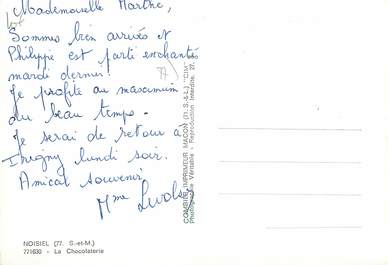 Mademoiselle Marthe,
Sommes bien arrivés et
Philippe est parti enchanté
mardi dernier.
Je profite au maximum
du beau temps.
Je serai de retour à
lundi soir.
Amical souvenir
Mme
77)
COMBIER IMPRIMEUR MACON (71. S.-&-L.) "CIM"
Photographie Véritable - Reproduction Interdite.
NOISIEL (77. S.-et-M.)
771630 - La Chocolaterie